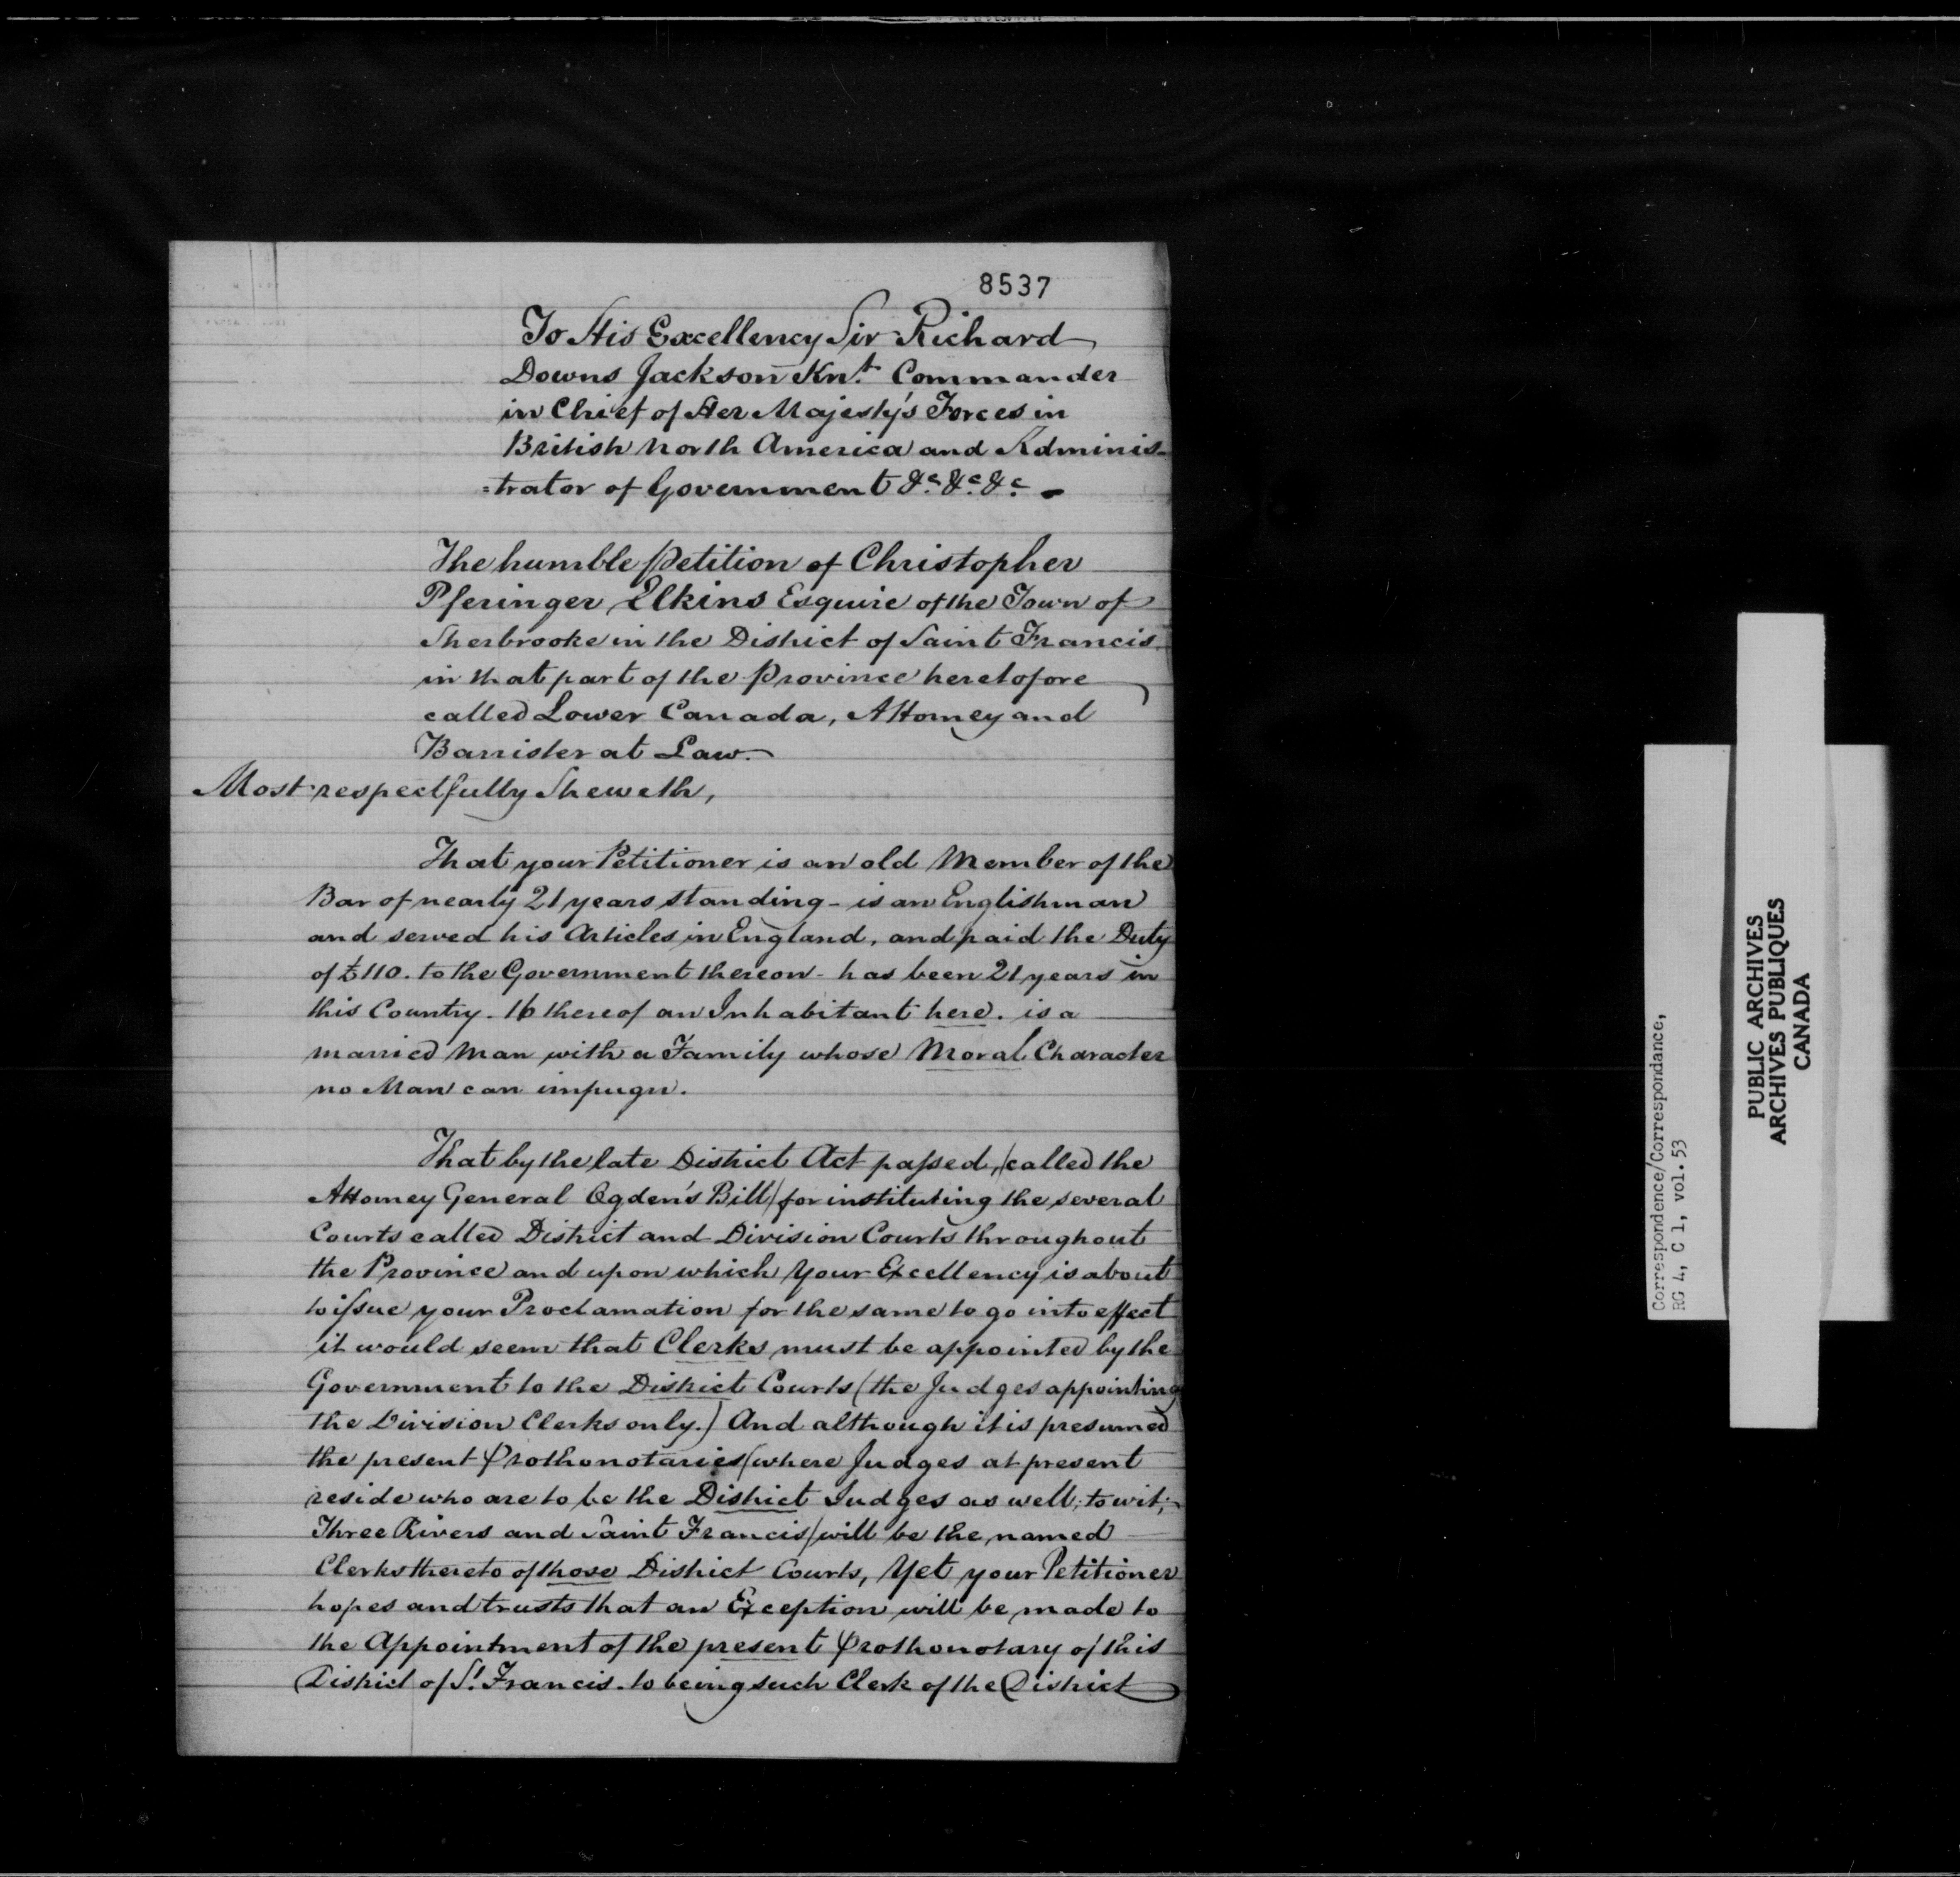 8537
To His Excellency Sir Richard
Downs Jackson Knt. Commander
in Chief of Her Majesty's Forces in
British North America and Adminis-
=trator of Government &c. &c. &c. -
The humble Petition of Christopher
Pferinger Elkins Esquire of the Town of
Sherbrooke in the District of Saint Francis
in that part of the Province heretofore
called Lower Canada, Attorney and
Barrister at Law.
Most respectfully Sheweth,
That your Petitioner is an old Member of the
Bar of nearly 21 years standing - is an Englishman
and served his Articles in England, and paid the Duty
of £110. to the Government thereon - has been 21 years in
this Country. 16 thereof an Inhabitant here. is a
married Man with a Family whose Moral Character
no Man can impugn.
That by the late District Act passed, (called the
Attorney General Ogden's Bill) for instituting the several
Courts called District and Division Courts throughout
the Province and upon which Your Excellency is about
to issue your Proclamation for the same to go into effect
it would seem that Clerks must be appointed by the
Government to the District Courts (the Judges appointing
the Division Clerks only.) And although it is presumed
the present Prothonotaries (where Judges at present
reside who are to be the District Judges as well; to wit;
Three Rivers and Saint Francis) will be the named
Clerks thereto of those District Courts, Yet your Petitioner
hopes and trusts that an Exception will be made to
the Appointment of the present Prothonotary of this
District of St. Francis. to being such Clerk of the District
Correspondence/Correspondance,
RG 4, C 1, vol.53
PUBLIC ARCHIVES
ARCHIVES PUBLIQUES
CANADA